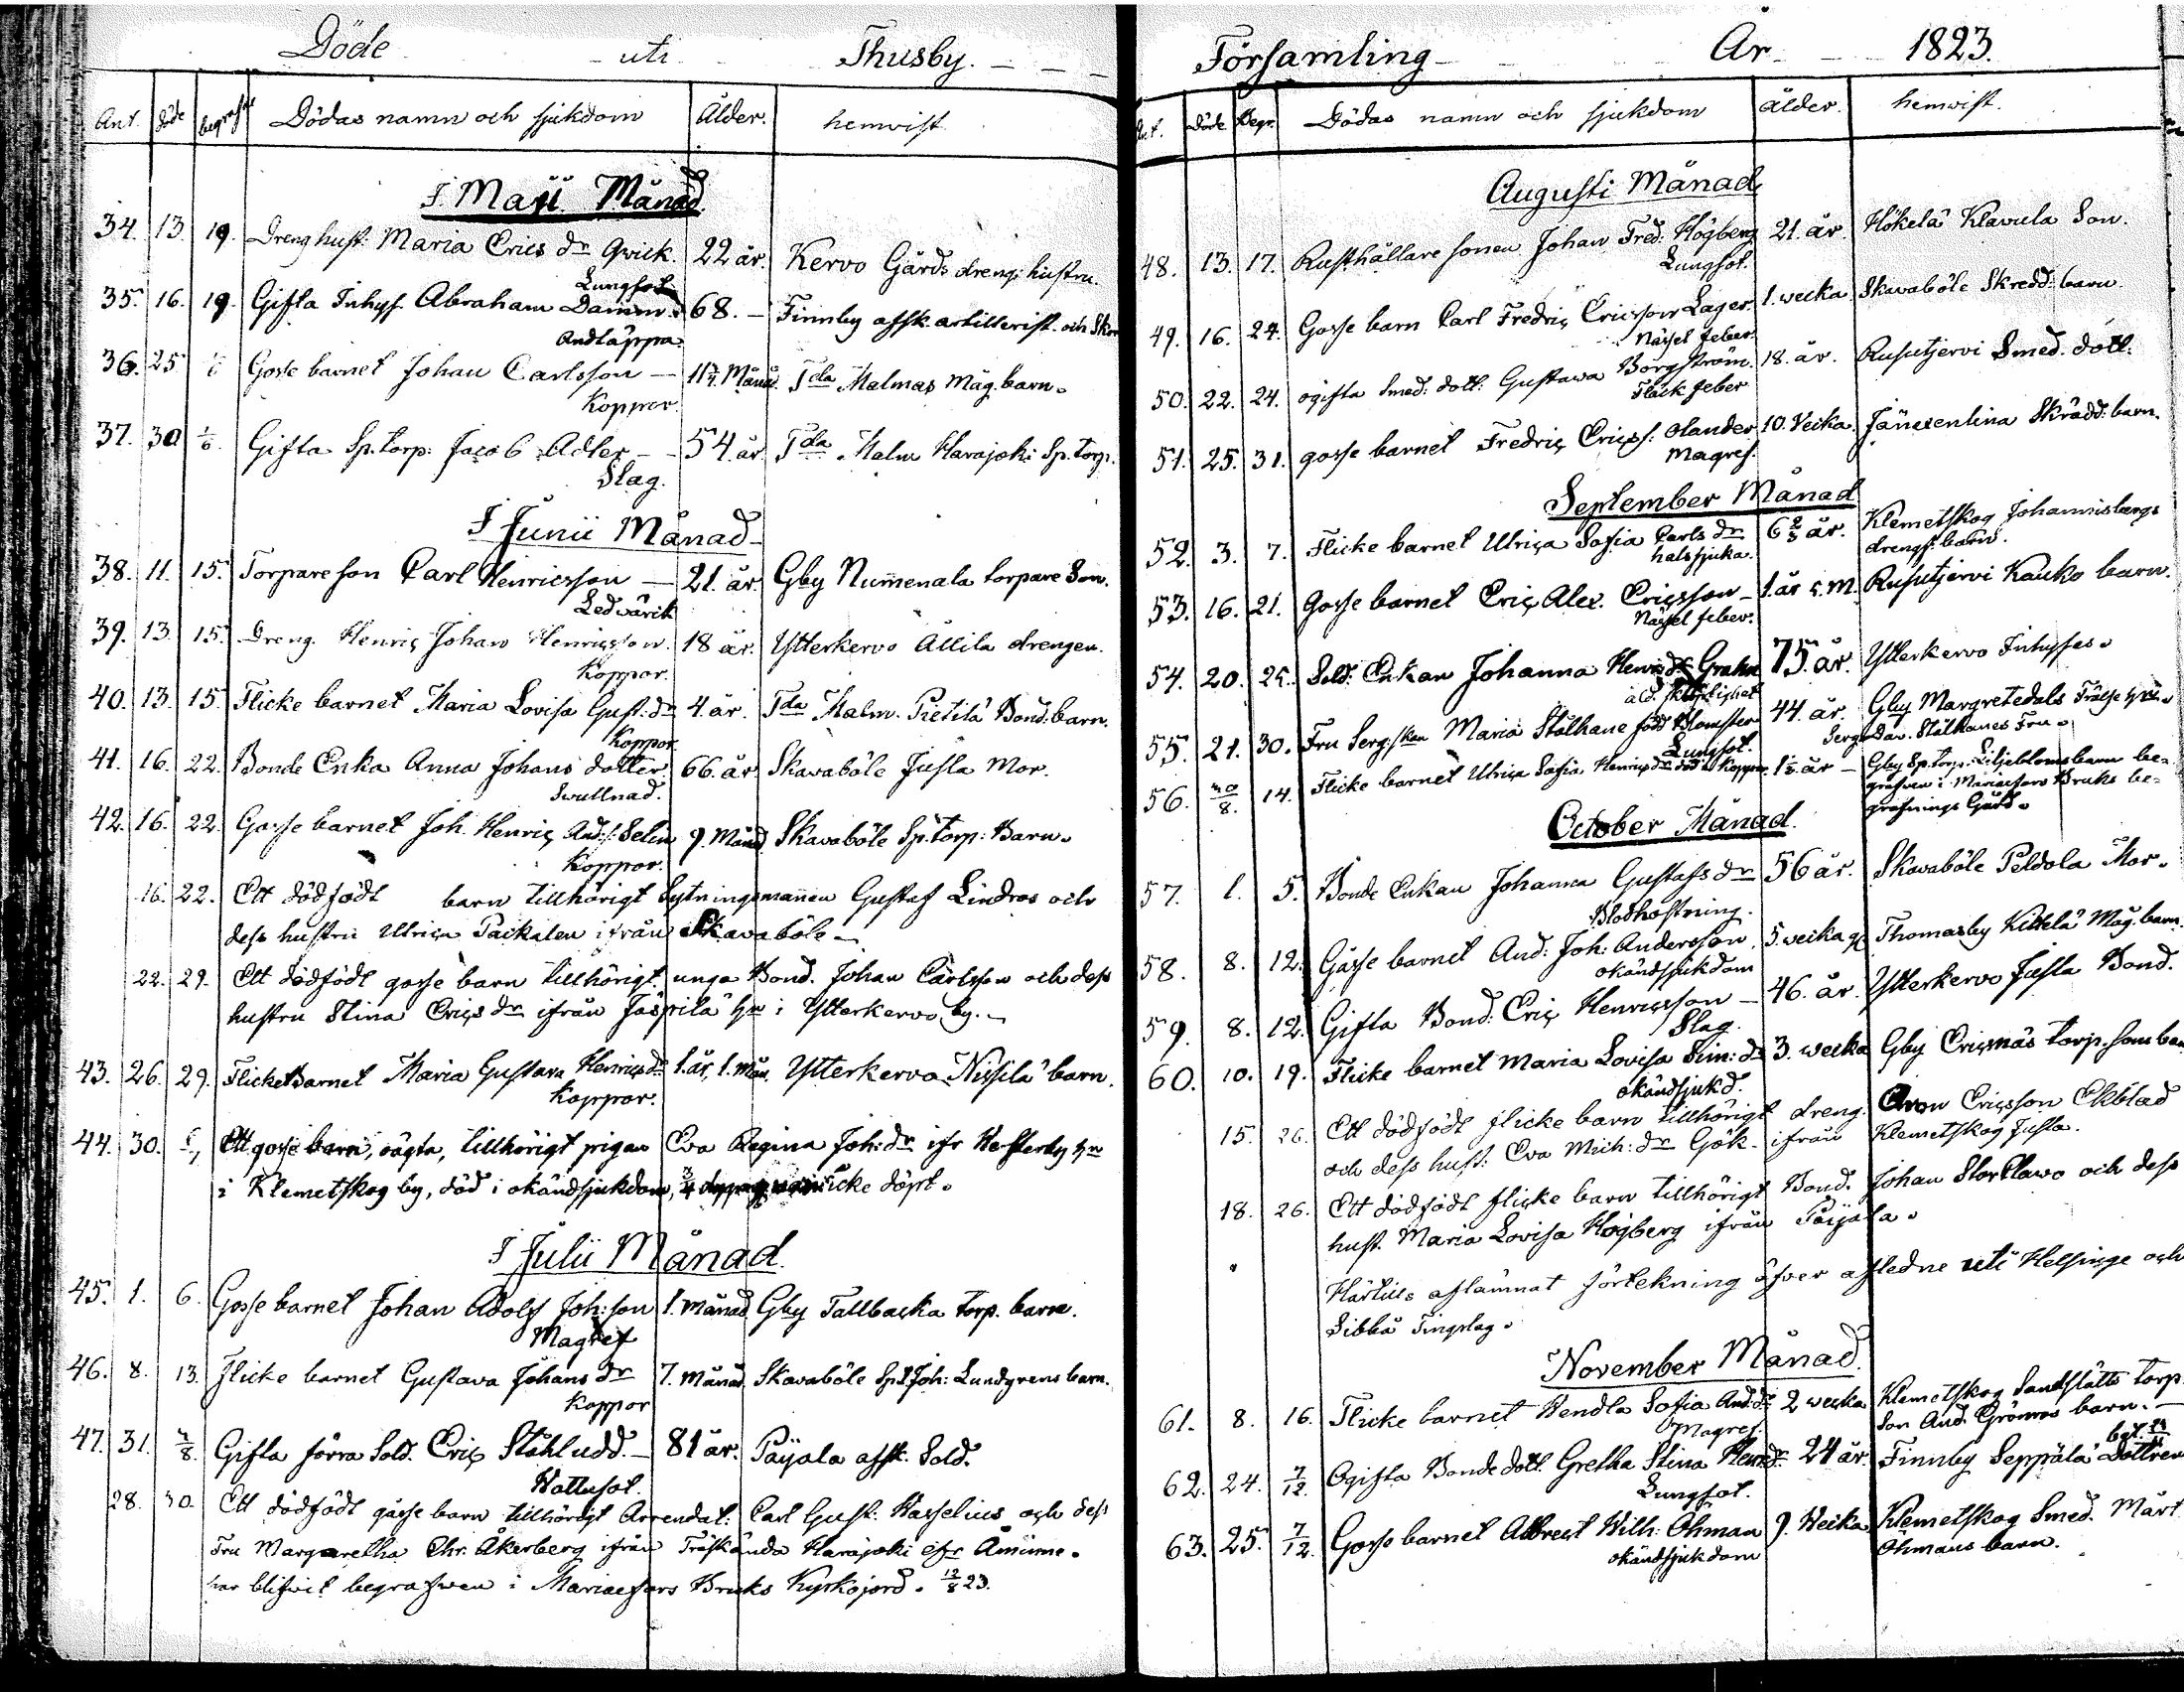 Döde uti Thusby.
Ant. döde begrafd Dödas namn och sjukdom Ålder. hemvist
I Maji Månad
34. 13. 19. Dreng hust: Maria Erics dr Qvick. 22 år. Kervo Gårds drengs hustru.
Lungsot
35. 16. 19. Gifta Inhys. Abraham Damm. 68. – Finnby afsk. artillerist. och Skom
Andtäppa.
36. 25 Gosse barnet Johan Carlsson — 11 3/4. Månad. Tda Malmas Måg. barn.
Koppor.
37. 30 1/6. Gifta Sp. torp: Jacob Adler — 54. år Tda Malm Harajoki Sp. torp.
Slag.
I Junii Månad
38. 11. 15. Torpare son Carl Henricsson — 21. år Gby Nummenala torpare Son.
Ledvärk
39. 13. 15. Dreng. Henric Johan Henricsson. 18 år. Ytterkervo Allila drengen.
Koppor.
40. 13. 15. Flicke barnet Maria Lovisa Gust: dr 4. år. Tda Malm. Pietilä Bond. barn.
Koppor
41. 16. 22. Bonde Enka Anna Johans dotter. 66. år Skavaböle Jusla Mor.
Svullnad.
42. 16. 22. Gosse barnet Joh. Henric And: s. Selin 9. Månad Skavaböle Sp. torp: Barn.
Koppor.
16. 22. Ett dödfödt barn tillhörigt Sytningsmannen Gustaf Lindros och
dess hustru Ulrica Packalen ifrån Skavaböle —
22. 29. Ett dödfödt gosse barn tillhörigt unga Bond. Johan Carlsson och dess
hustru Stina Erics dr ifrån Jäspilä hn i Ytterkervo by. —
43. 26. 29. Flicke Barnet Maria Gustava Henrics dr 1. år, 1. Mån. Ytterkervo Nissilä barn.
Koppor.
44. 30. Ett gosse barn, oägta, tillhörigt pigan Eva Regina Joh: dr ifr Hersterby hn
i Klemetskog by, död i okändsjukdom, 3/4 icke döpt.
I Julii Månad.
45. 1. 6. Gosse barnet Johan Adolf Joh: son 1. månad Gby Tallbacka torp. barn.
Magref
46. 8. 13. Flicke barnet Gustava Johans dr 7. månad. Skavaböle Sp. t. Joh: Lundgrens barn.
Koppor
47. 31. 3/8. Gifta förra Sold. Eric Ståhludd. — 81 år. Päijala afsk. Sold.
Vattusot.
28. 30. Ett dödfödt gosse barn tillhörigt Arrendat: Carl Gust. Hasselius och dess
Fru Margaretha Chr. Åkerberg ifrån Träskända Harajoki efr Åminne.
har blifvit begrafven i Mariaefors Bruks Kyrkojord. 12/8 23.
Församling År 1823.
Ant. Döde Begr. Dödas namn och sjukdom ålder. hemvist.
Augusti Månad
48. 13. 17. Rusthållare sonen Johan Fred: Högberg 21. år. Hökelä Klavula Son.
Lungsot.
49. 16. 24. Gosse barn Carl Fredric Ericsson Lager. 1. wecka Skavaböle Skredd: barn.
Näsel feber.
50. 22. 24. ogifta Smed: dott: Gustava Borgström. 18. år. Rusutjervi Smed. dott:
Fläck feber
51. 25. 31. gosse barnet Fredric Erics s: Olander 10. Vecka. Jänisenlina Skrädd: barn.
Magref.
September Månad
52. 3. 7. Flicke barnet Ulrica Sofia Carls dr 6 2/3 år. Klemetskog Johannisbergs
halssjuka. drengs barn.
53. 16. 21. Gosse barnet Eric Alex. Ericsson — 1. år 5. M. Rusutjervi Kauko barn.
Näsel feber.
54. 20. 25. Sold: Enkan Johanna Henrics dr Grahn 75. år. Ytterkervo Inhyses.
åld. skröplighet
55. 21. 30. Fru Serg: skan Maria Stålhane född Blomster 44. år. Gby Margretedals Frälse hn.
Lungsot. Serg: Dav. Stålhanes Fru.
56. 30/8. 14. Flicke barnet Ulrica Sofia Henrics dr död i Koppor. 1 1/2. år — Gby Sp. torp. Liljebloms barn be-
grafven i Mariaefors Bruks be-
grafnings Gård.
October Månad.
57. 1. 5. Bonde Enkan Johanna Gustafs dr 56 år. Skavaböle Peldola Mor.
Blodhostning.
58. 8. 12. Gosse barnet And: Joh: Andersson. 5. wecka Thomasby Kittelä Måg. barn.
okändsjukdom
59. 8. 12. Gifta Bond: Eric Henricsson — 46. år. Ytterkervo Jusla Bond.
Slag.
60. 10. 19. Flicke barnet Maria Lovisa Sim: dr 3. wecka Gby Ericsnäs torp. sons barn
okändsjukd.
15. 26. Ett dödfödt flicke barn tillhörigt dreng. Aron Ericsson Ekblad
och dess hust: Eva Mich: dr Gök. ifrån Klemetskog Jusla.
18. 26. Ett dödfödt flicke barn tillhörigt Bond. Johan Storklavo och dess
hust. Maria Lovisa Högberg ifrån Päijala.
Härtills aflämnat förtekning öfver afledne uti Helsinge och
Sibbå Tingslag.
November Månad.
61. 8. 16. Flicke barnet Hendla Sofia And: dr 2 wecka Klemetskog Sandslätts torp.
Magref. Son And. Grönroos barn. —
62. 24. 7/12. Ogifta Bonde dott. Gretha Stina Henr: dr 24 år. Finnby Seppälä Dottren
Lungsot.
63. 25. 7/12. Gosse barnet Albrect Wilh: Öhman 9. Wecka Klemetskog Smed. Mårt.
okändsjukdom Öhmans barn.